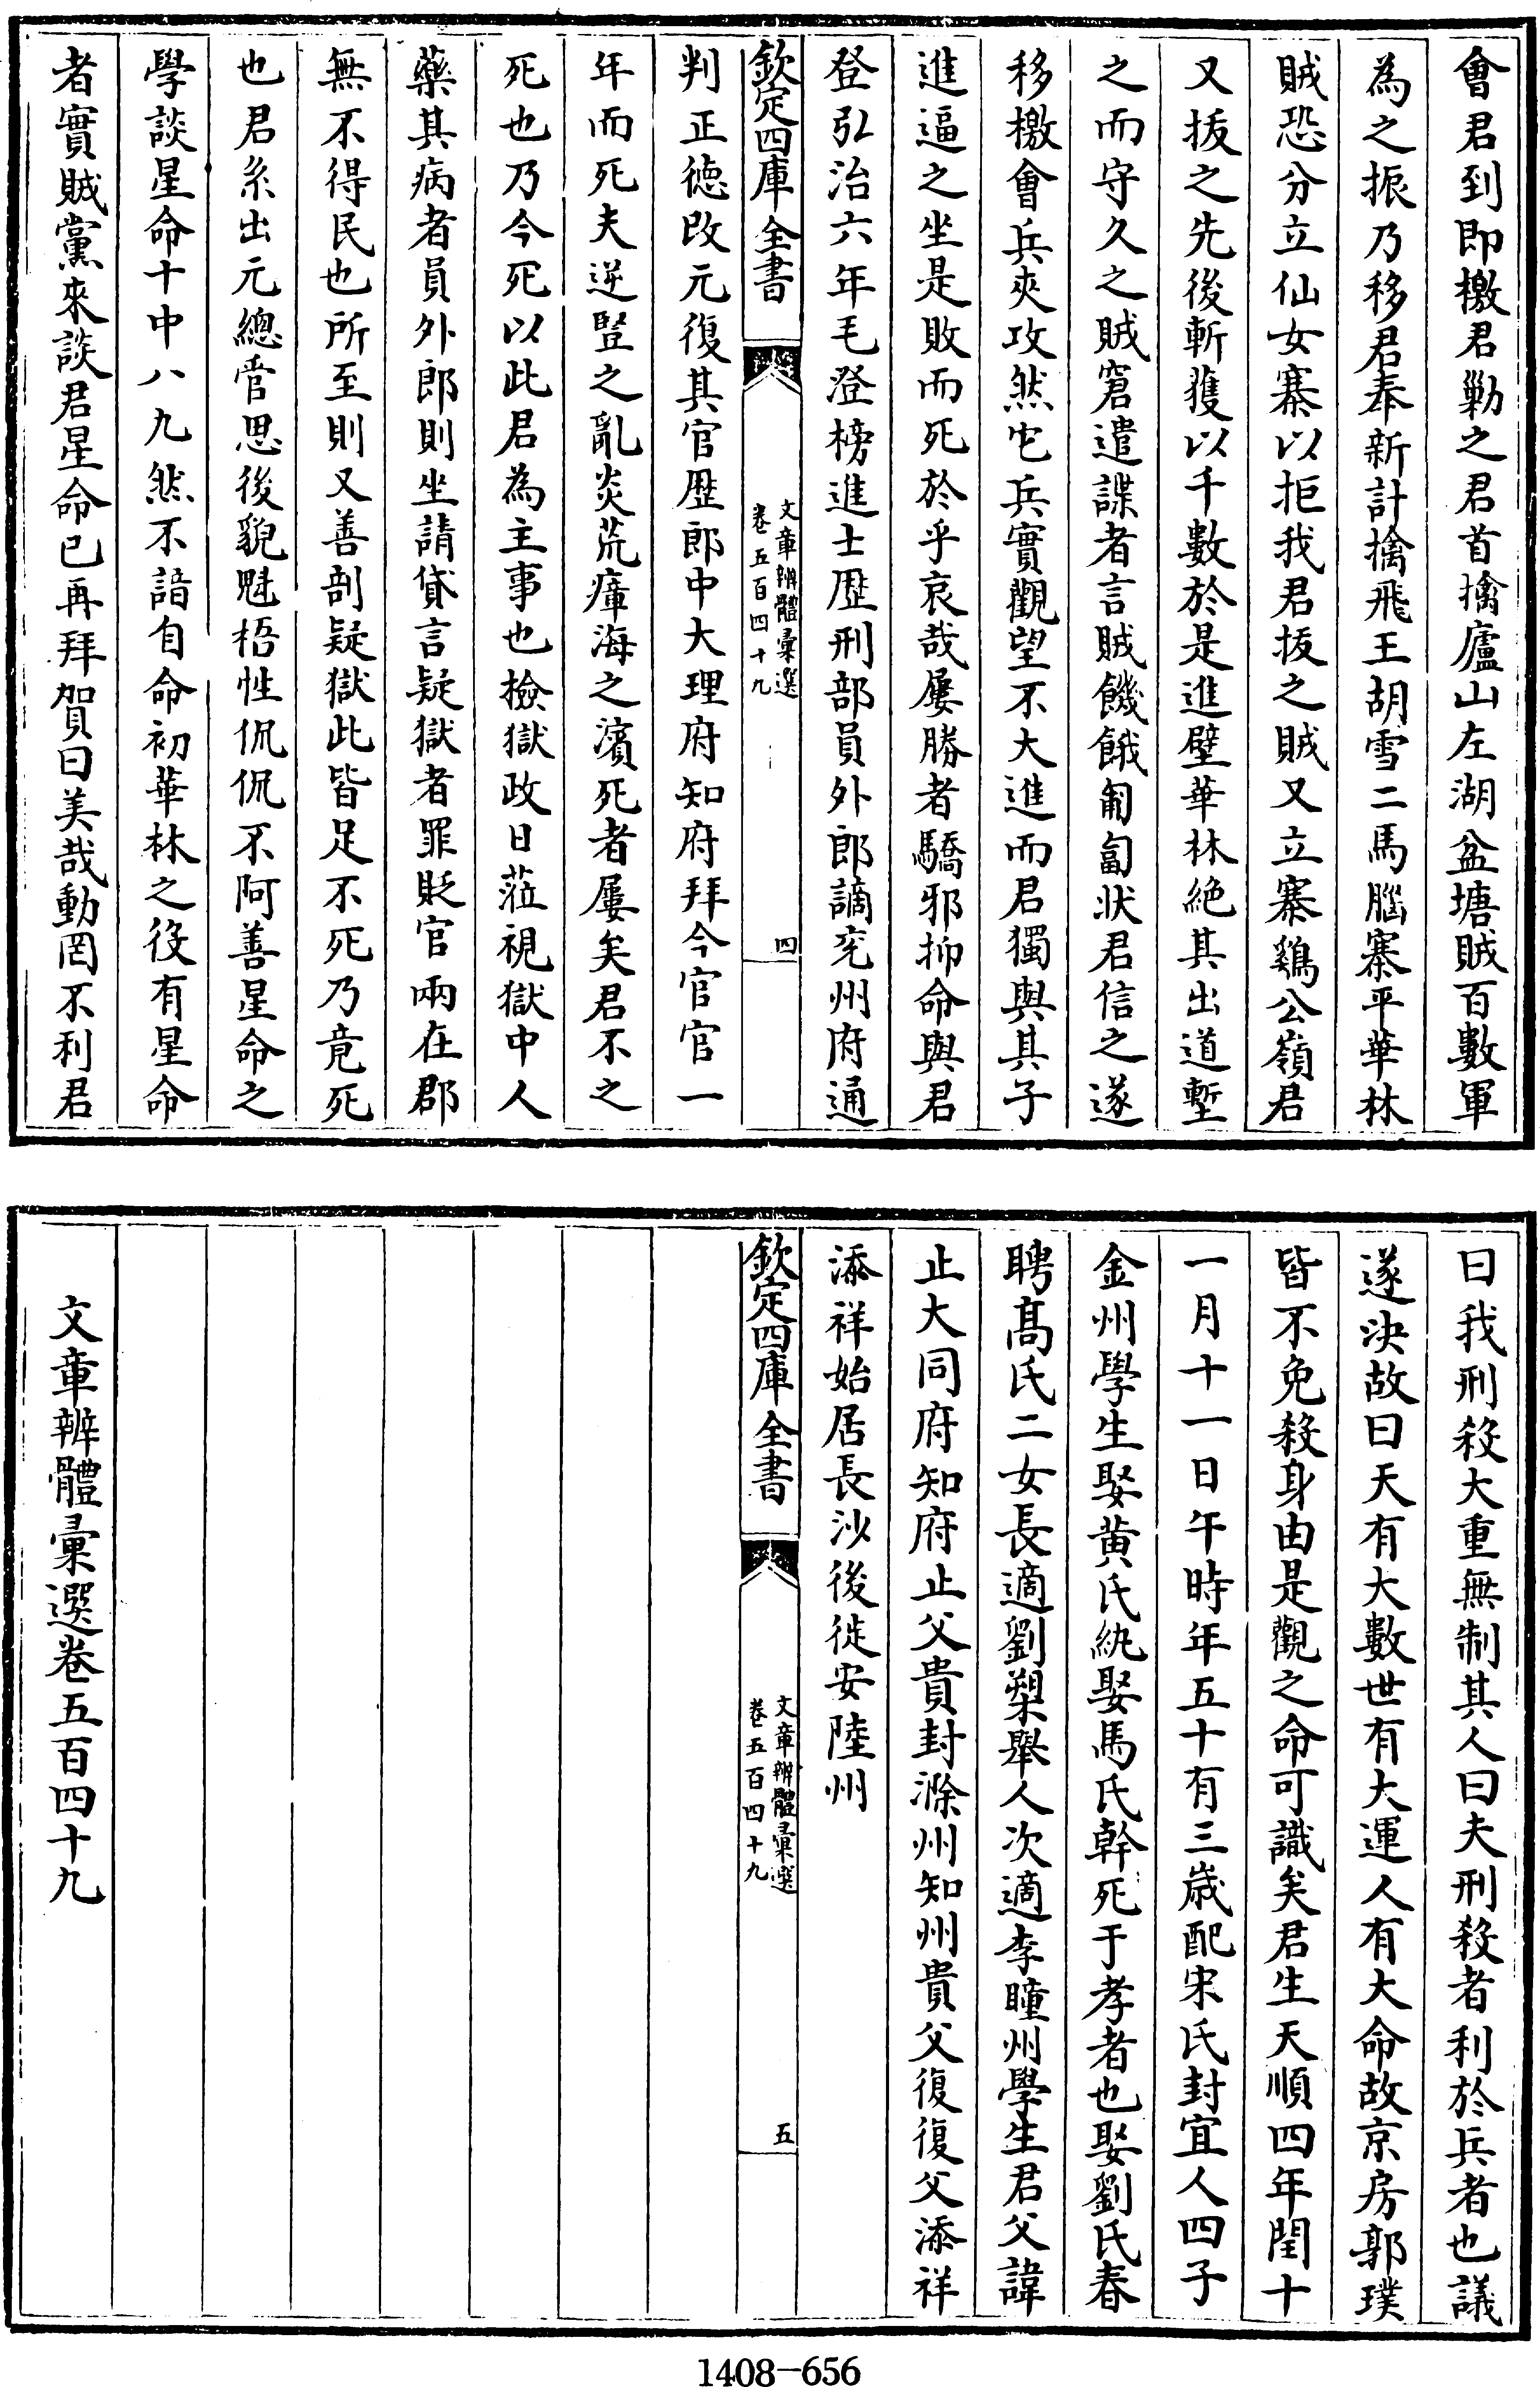 會君到即檄君勦之君首擒廬山左湖盆塘賊百數軍
為之振乃移君奉新計擒飛王胡雪二馬腦寨平華林
賊恐分立仙女寨以拒我君拔之賊又立寨鷄公嶺君
又拔之先後斬獲以千數於是進壁華林絕其出道塹
之而守久之賊窘遣諜者言賊饑餓匍匐狀君信之遂
移檄會兵夾攻然屯兵實觀望不大進而君獨與其子
進逼之坐是敗而死於乎哀哉屢勝者驕邪抑命與君
登弘治六年毛澄榜進士歷刑部員外郎謫兖州府通
欽定四庫全書
文章辨體彙選
卷五百四十九
四
判正徳改元復其官歴郎中大理府知府拜今官官一
年而死夫逆豎之亂炎荒瘴海之濱死者屢矣君不之
死也乃今死以此君為主事也檢獄政日蒞視獄中人
藥其病者員外郎則坐請貸言疑獄者罪貶官兩在郡
無不得民也所至則又善剖疑獄此皆足不死乃竟死
也君系出元總管思後貌魁梧性侃侃不阿善星命之
學談星命十中八九然不諳自命初華林之役有星命
者實賊黨來談君星命已再拜賀曰美哉動罔不利君
曰我刑殺大重無制其人曰夫刑殺者利於兵者也議
遂決故曰天有大數世有大運人有大命故京房郭璞
皆不免殺身由是觀之命可識矣君生天順四年閏十
一月十一日午時年五十有三歳配宋氏封宜人四子
金州學生娶黄氏紈娶馬氏幹死于孝者也娶劉氏春
聘髙氏二女長適劉槊舉人次適李瞳州學生君父諱
止大同府知府止父貴封滁州知州貴父復復父添祥
添祥始居長沙後徙安陸州
欽定四庫全書
文章辨體彙選
卷五百四十九
五
文章辨體彙選卷五百四十九
1408-656